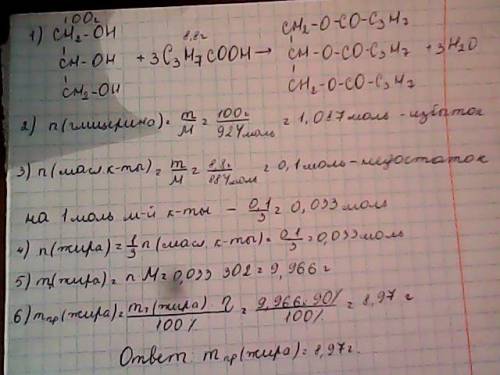 100г 8,8г
1) CH₂-OH CH₂-O-CO-C₃H₇
CH-OH + 3C₃H₇COOH → CH-O-CO-C₃H₇ + 3H₂O
CH₂-OH CH₂-O-CO-C₃H₇
2) n(глицерина) = m/M = 100г/92г/моль = 1,087 моль - избыток
3) n(масл. к-ты) = m/M = 8,8г/88г/моль = 0,1 моль - недостаток
на 1 моль м-й к-ты - 0,1/3 = 0,033 моль
4) n(жира) = 1/3 n(масл. к-ты) = 0,1/3 = 0,033 моль
5) m(жира) = n M = 0,033 302 = 9,966 г
6) mпр(жира) = mт(жира) η/100% = 9,966·90%/100% = 8,97 г
Ответ: mпр(жира) = 8,97г.